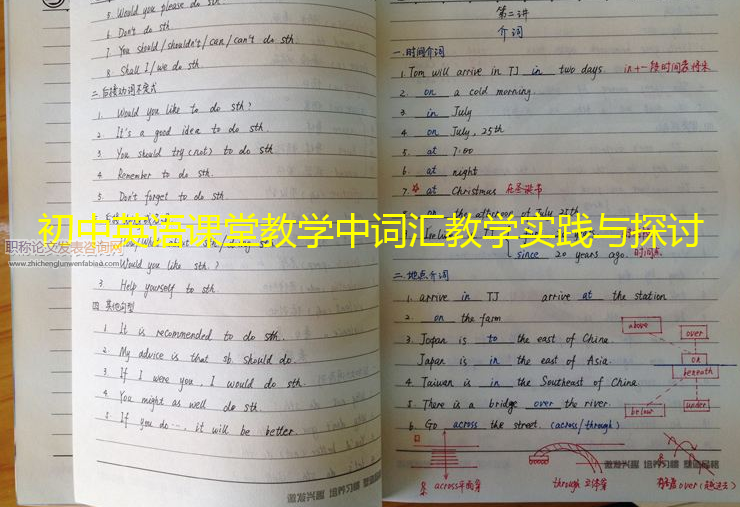 5. Would you please do sth.
6. Don't do sth
7. You should/shouldn't/can/can't do sth.
8. Shall I/we do sth.
二.后接动词不定式
1. Would you like to do sth?
2. It's a good idea to do sth.
3. You should try (not) to do sth
4. Remember to do sth.
5. Don't forget to do sth
初中英语课堂教学中词汇教学实践与探讨
职称论文发表咨询网
www.zhichenglunwenfabiao.com
Would you like sth.?
3. Help yourself to sth
四 其他句型
1. It is recommended to do sth.
2. My advice is that sb should do.
3. If I were you, I would do sth.
4. You might as well do sth
5. If you do..., it will be better.
激发兴趣 培养习惯
第二讲
介词
一.时间介词
1. Tom will arrive in TJ in two days. in+一段时间表将来
2. on a cold morning.
3. in July
4. on July, 25th
5. at 7:00
6. at night
7. at Christmas 在圣诞节
on the afternoon of July 25th
since 20 years ago.
二.地点介词
1. arrive in TJ arrive at the station
2. on the farm
3. Japan is to the east of China
Japan is in the east of Asia.
4. Taiwan is in the Southeast of China.
5. There is a bridge over the river.
6. Go across the street. (across/through)
above
over
on
beneath
below
under
across平面穿
through 立体穿
over
激发兴趣 培养习惯